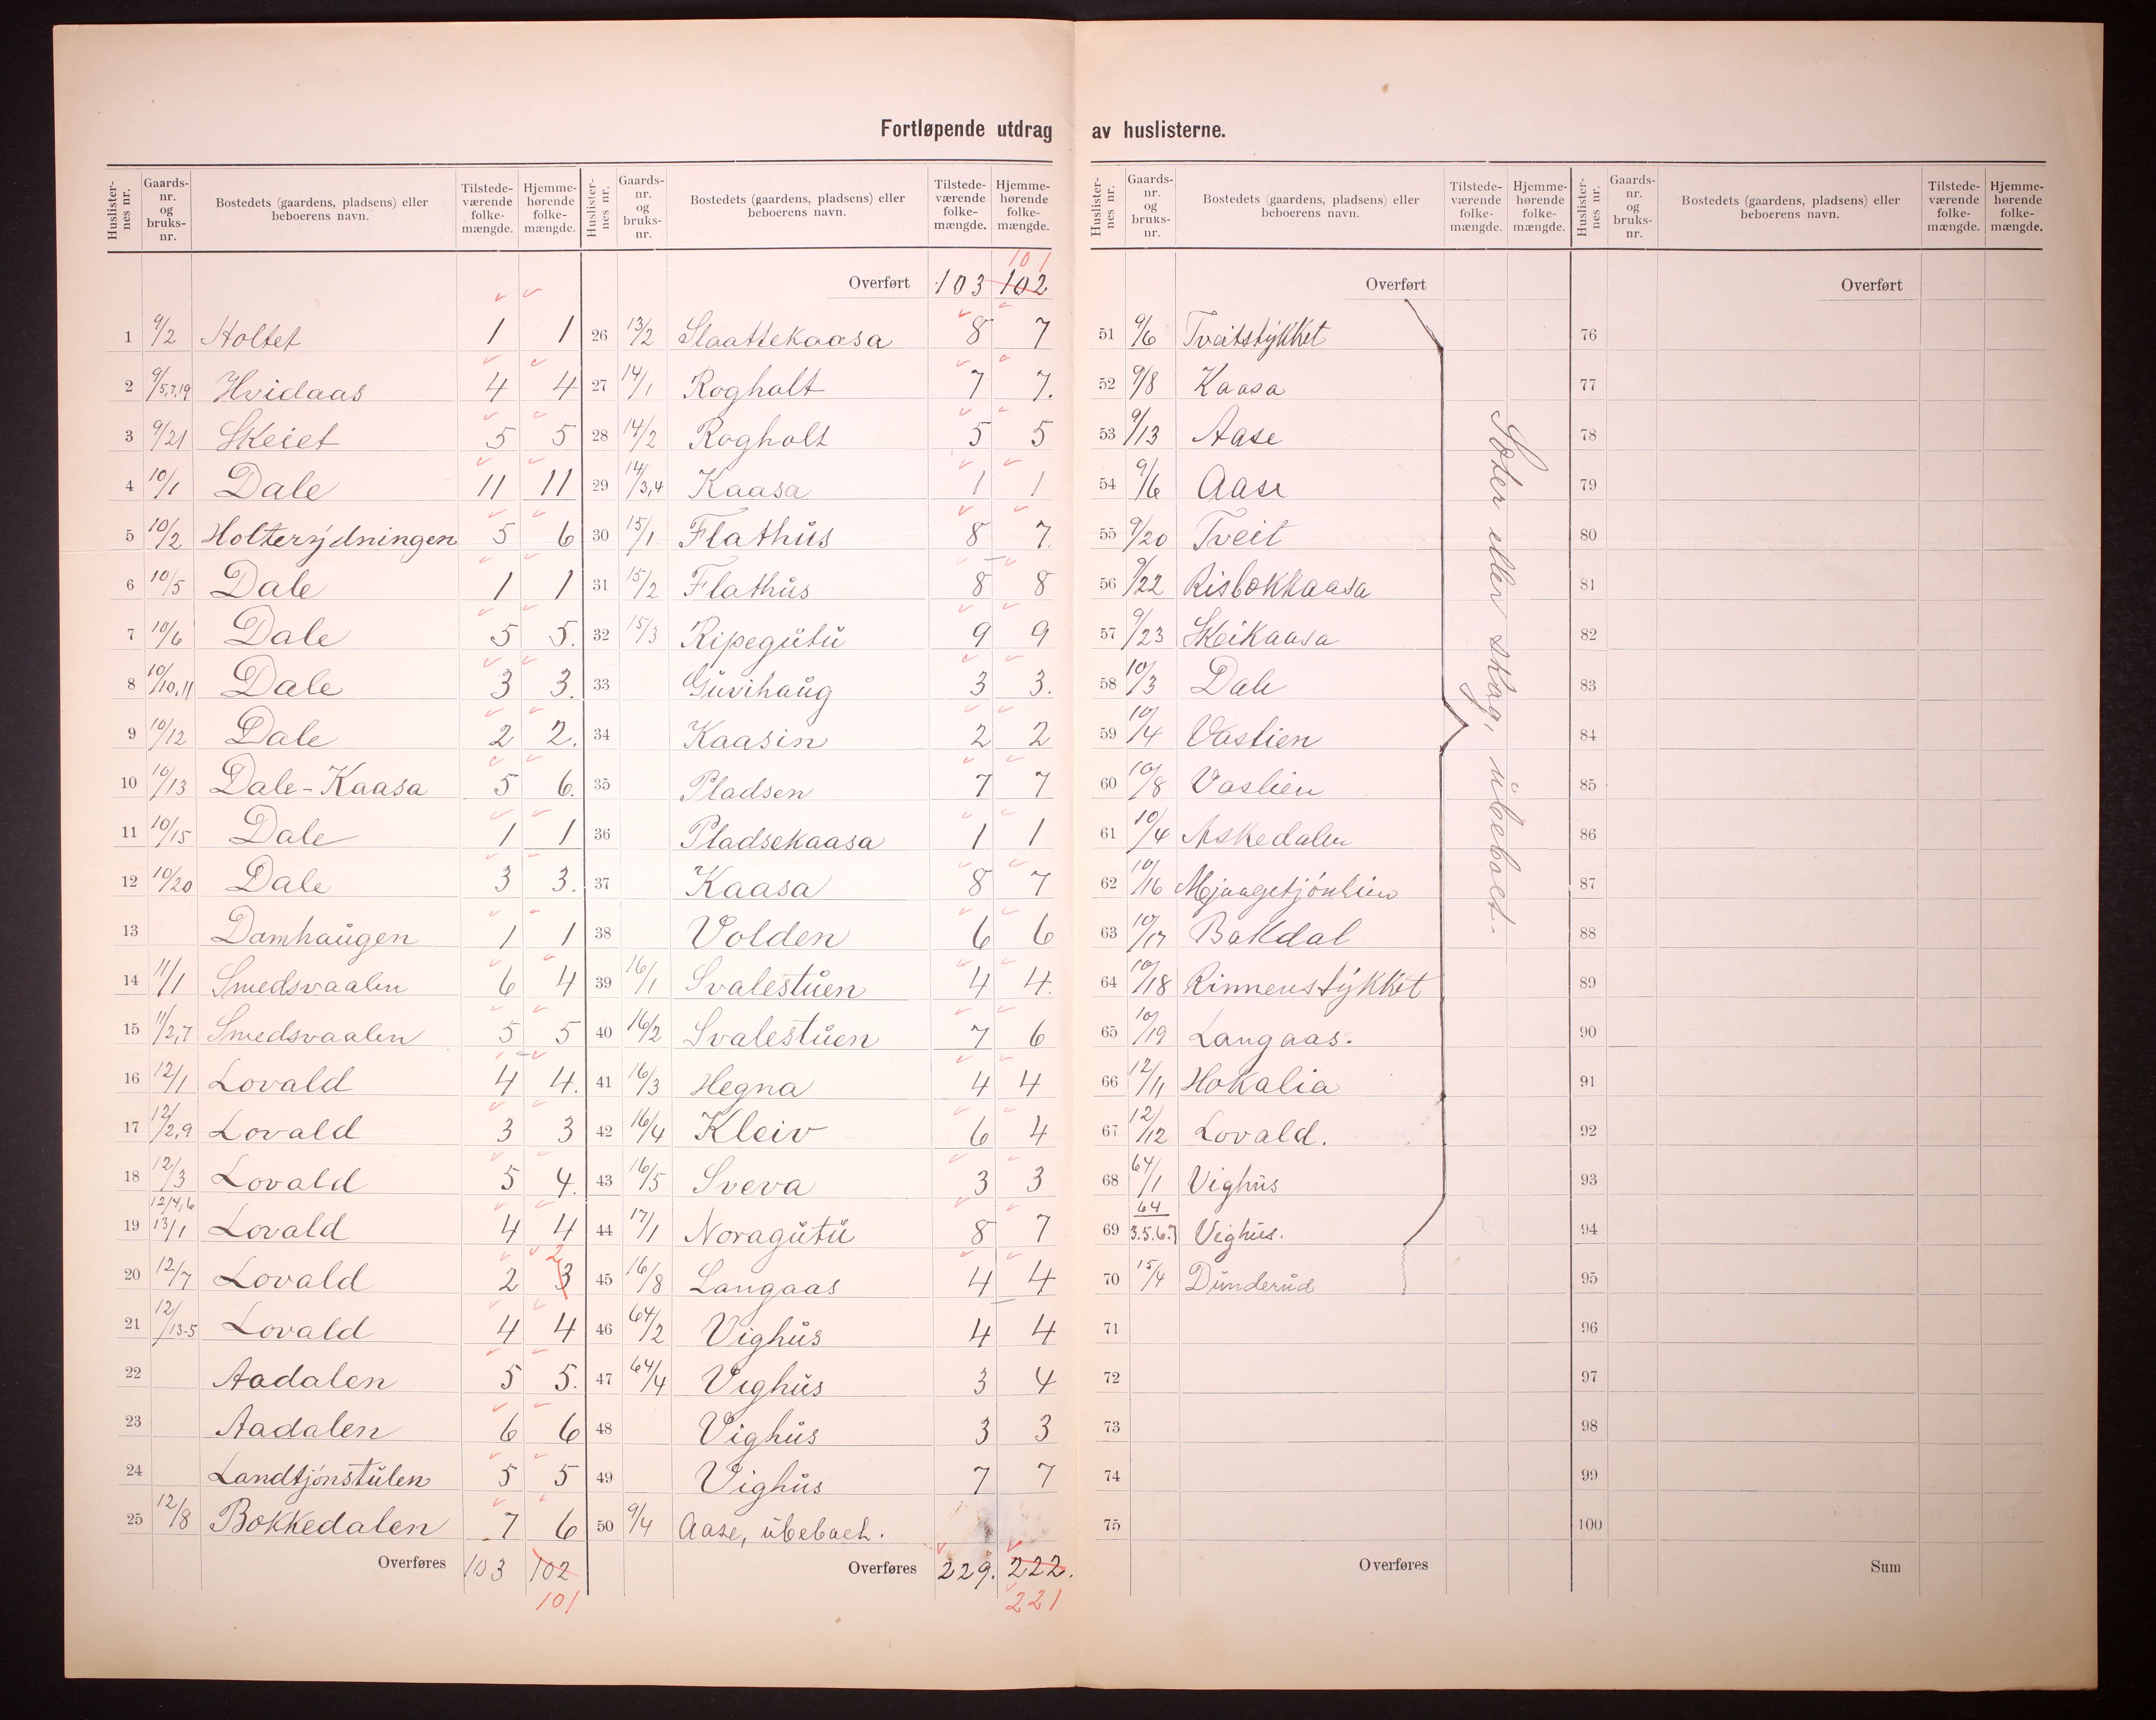 Fortløpende utdrag av huslisterne.
Huslister-nes nr. | Gaards-nr. og bruks-nr. | Bostedets (gaardens, pladsens) eller beboerens navn. | Tilstede-værende folke-mængde. | Hjemme-hørende folke-mængde.
1 9/2 Holtet 1 1
2 9/5,7,19 Hvidaas 4 4
3 9/21 Skeiet 5 5
4 10/1 Dale 11 11
5 10/2 Holterydningen 5 6
6 10/5 Dale 1 1
7 10/6 Dale 5 5.
8 10/10,11 Dale 3 3.
9 10/12 Dale 2 2.
10 10/13 Dale-Kaasa 5 6.
11 10/15 Dale 1 1
12 10/20 Dale 3 3.
13 Damhaugen 1 1
14 11/1 Smedsvaalen 6 4
15 11/2,7 Smedsvaalen 5 5
16 12/1 Lovald 4 4.
17 12/2,9 Lovald 3 3
18 12/3 Lovald 5 4.
19 12/4,6 13/1 Lovald 4 4
20 12/7 Lovald 2 3 2
21 12/13-5 Lovald 4 4
22 Aadalen 5 5.
23 Aadalen 6 6
24 Landtjønstulen 5 5
25 12/8 Bokkedalen 7 6
Overføres 103 102
101
Huslister-nes nr. | Gaards-nr. og bruks-nr. | Bostedets (gaardens, pladsens) eller beboerens navn. | Tilstede-værende folke-mængde. | Hjemme-hørende folke-mængde.
101
Overført 103 102
26 13/2 Slaattekaasa 8 7
27 14/1 Rogholt 7 7.
28 14/2 Rogholt 5 5
29 14/3,4 Kaasa 1 1
30 15/1 Flathus 8 7.
31 15/2 Flathus 8 8
32 15/3 Ripegutu 9 9
33 Guvihaug 3 3.
34 Kaasin 2 2
35 Pladsen 7 7
36 Pladsekaasa 1 1
37 Kaasa 8 7
38 Volden 6 6
39 16/1 Svalestuen 4 4.
40 16/2 Svalestuen 7 6
41 16/3 Hegna 4 4
42 16/4 Kleiv 6 4
43 16/5 Sveva 3 3
44 17/1 Noragutu 8 7
45 16/8 Langaas 4 4
46 64/2 Vighus 4 4
47 64/4 Vighus 3 4
48 Vighus 3 3
49 Vighus 7 7
50 9/4 Aase, ubeboet.
Overføres 229. 222.
221
Huslister-nes nr. | Gaards-nr. og bruks-nr. | Bostedets (gaardens, pladsens) eller beboerens navn. | Tilstede-værende folke-mængde. | Hjemme-hørende folke-mængde.
Overført
51 9/6 Tveitstykket
52 9/8 Kaasa
53 9/13 Aase
54 9/6 Aase
55 9/20 Tveit
56 9/22 Risbokkaasa
57 9/23 Skeikaasa
58 10/3 Dale
59 10/4 Vaslien
60 10/8 Vaslien
61 10/4 Askedalen
62 10/16 Mjaagetjønlien
63 10/17 Bakdal
64 10/18 Rinnenstykket
65 10/19 Langaas.
66 12/11 Hokalia
67 12/12 Lovald.
68 64/1 Vighus
69 64/3.5.6.7 Vighus.
70 15/4 Dunderud
71
72
73
74
75
Overføres
Sæter eller skog, ubeboet.
Huslister-nes nr. | Gaards-nr. og bruks-nr. | Bostedets (gaardens, pladsens) eller beboerens navn. | Tilstede-værende folke-mængde. | Hjemme-hørende folke-mængde.
Overført
76
77
78
79
80
81
82
83
84
85
86
87
88
89
90
91
92
93
94
95
96
97
98
99
100
Sum